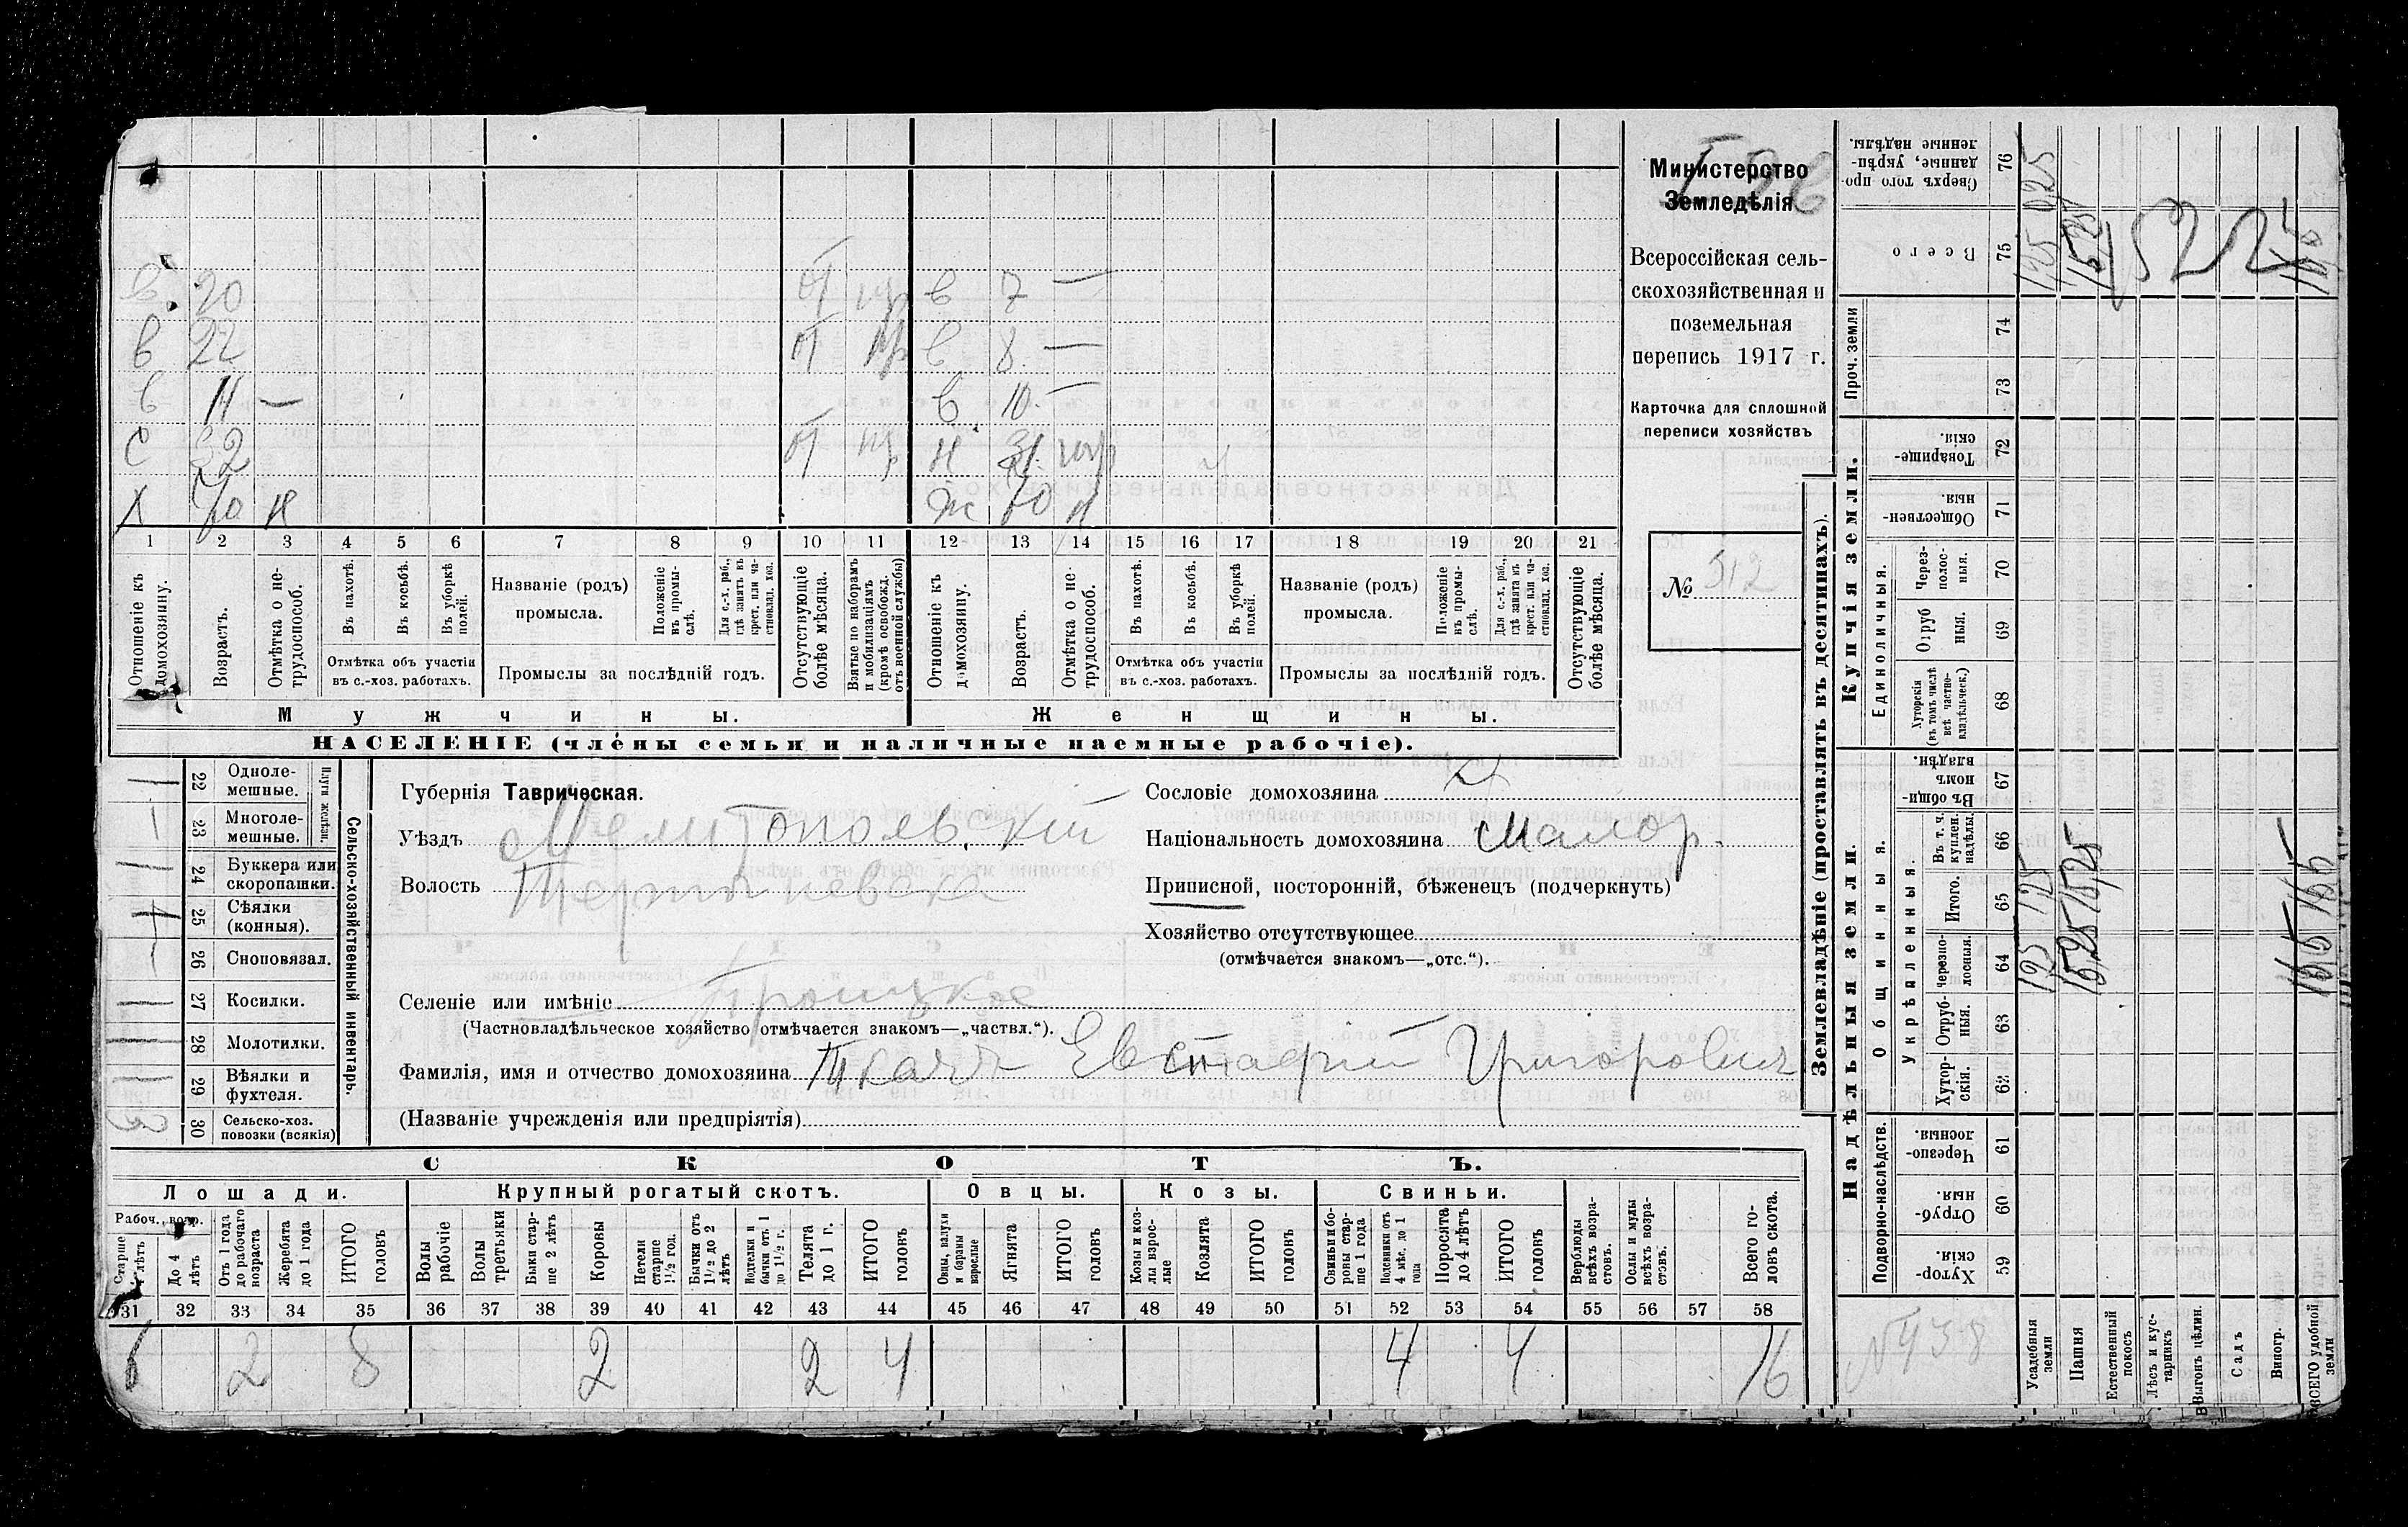 Министерство
Земледѣлія
Всероссійская сель-
скохозяйственная и
поземельная
перепись 1917 г.
Карточка для сплошной
переписи хозяйствъ
№ 512
в 20 от в 7 —
в 22 от в 8 —
в 11 — в 10 —
с 32 от н 31
х 70 н ж 70 н
1 2 3 4 5 6 7 8 9 10 11 12 13 14 15 16 17 18 19 20 21
Отношеніе къ домохозяину.
Возрастъ.
Отмѣтка о не-трудоспособ.
Въ пахотѣ.
Въ косьбѣ.
Въ уборкѣ полей.
Отмѣтка объ участіи въ с.-хоз. работахъ.
Названіе (родъ) промысла.
Положеніе въ промы-слѣ.
Для с.-х. раб., гдѣ занятъ въ крест. или ча-стновлад. хоз.
Промыслы за послѣдній годъ.
Отсутствующіе болѣе мѣсяца.
Взятые по наборамъ и мобилизаціямъ (кромѣ освобожд. отъ военной службы)
Отношеніе къ домохозяину.
Возрастъ.
Отмѣтка о не-трудоспособ.
Въ пахотѣ.
Въ косьбѣ.
Въ уборкѣ полей.
Отмѣтка объ участіи въ с.-хоз. работахъ.
Названіе (родъ) промысла.
Положеніе въ промы-слѣ.
Для с.-х. раб., гдѣ занята въ крест. или ча-стновлад. хоз.
Промыслы за послѣдній годъ.
Отсутствующіе болѣе мѣсяца.
Мужчины.
Женщины.
НАСЕЛЕНІЕ (члены семьи и наличные наемные рабочіе).
Сельско-хозяйственный инвентарь.
Плуги желѣзн.
22 Одноле-мешные.
23 Многоле-мешные.
24 Буккера или скоропашки.
25 Сѣялки (конныя).
26 Сноповязал.
27 Косилки.
28 Молотилки.
29 Вѣялки и фухтеля.
30 Сельско-хоз. повозки (всякія)
Губернія Таврическая.
Уѣздъ Мелитопольскій
Волость
Селеніе или имѣніе Троицкое
(Частновладѣльческое хозяйство отмѣчается знакомъ—„частвл.“).
Фамилія, имя и отчество домохозяина Ткачъ Евстафій Григоровичъ
(Названіе учрежденія или предпріятія)
Сословіе домохозяина
Національность домохозяина Малор.
Приписной, посторонній, бѣженецъ (подчеркнуть)
Хозяйство отсутствующее
(отмѣчается знакомъ—„отс.“).
СКОТЪ.
Лошади. Крупный рогатый скотъ. Овцы. Козы. Свиньи.
Рабоч. возр.
Старше 4 лѣтъ
До 4 лѣтъ
Отъ 1 года до рабочаго возраста
Жеребята до 1 года
ИТОГО головъ
Волы рабочіе
Волы третьяки
Быки стар-ше 2 лѣтъ
Коровы
Нетели старше 1½ год.
Бычки отъ 1½ до 2 лѣтъ
Подтелки и бычки отъ 1 до 1½ г.
Телята до 1 г.
ИТОГО головъ
Овцы, валухи и бараны взрослые
Ягнята
ИТОГО головъ
Козы и коз-лы взрос-лые
Козлята
ИТОГО головъ
Свиньи и бо-ровы стар-ше 1 года
Подсвинки отъ 4 мѣс. до 1 года
Поросята до 4 лѣтъ
ИТОГО головъ
Верблюды всѣхъ возра-стовъ.
Ослы и мулы всѣхъ возра-стовъ.
Всего го-ловъ скота.
31 32 33 34 35 36 37 38 39 40 41 42 43 44 45 46 47 48 49 50 51 52 53 54 55 56 57 58
6 2 8 2 2 4 4 4 16
Землевладѣніе (проставлять въ десятинахъ).
Купчія земли.
Надѣльныя земли.
Сверхъ того про-данные, укрѣп-ленные надѣлы. 76
Всего 75
Проч. земли 74 73
Товарище-скія. 72
Обществен-ныя. 71
Единоличныя.
Через-полос-ныя. 70
Отруб-ныя. 69
Хуторскія (въ томъ числѣ всѣ частно-владѣльческ.) 68
Общинныя.
Въ общин-номъ владѣн. 67
Укрѣпленныя.
Въ т. ч. куплен. надѣлы. 66
Итого. 65
Черезпо-лосныя. 64
Отруб-ныя. 63
Хутор-скія. 62
Подворно-наслѣдств.
Черезпо-лосныя. 61
Отруб-ныя. 60
Хутор-скія. 59
Усадебныя земли
Пашня
Естественный покосъ
Лѣсъ и кус-тарникъ
Выгонъ цѣлин.
Садъ
Виногр.
ВСЕГО удобной земли
N 438